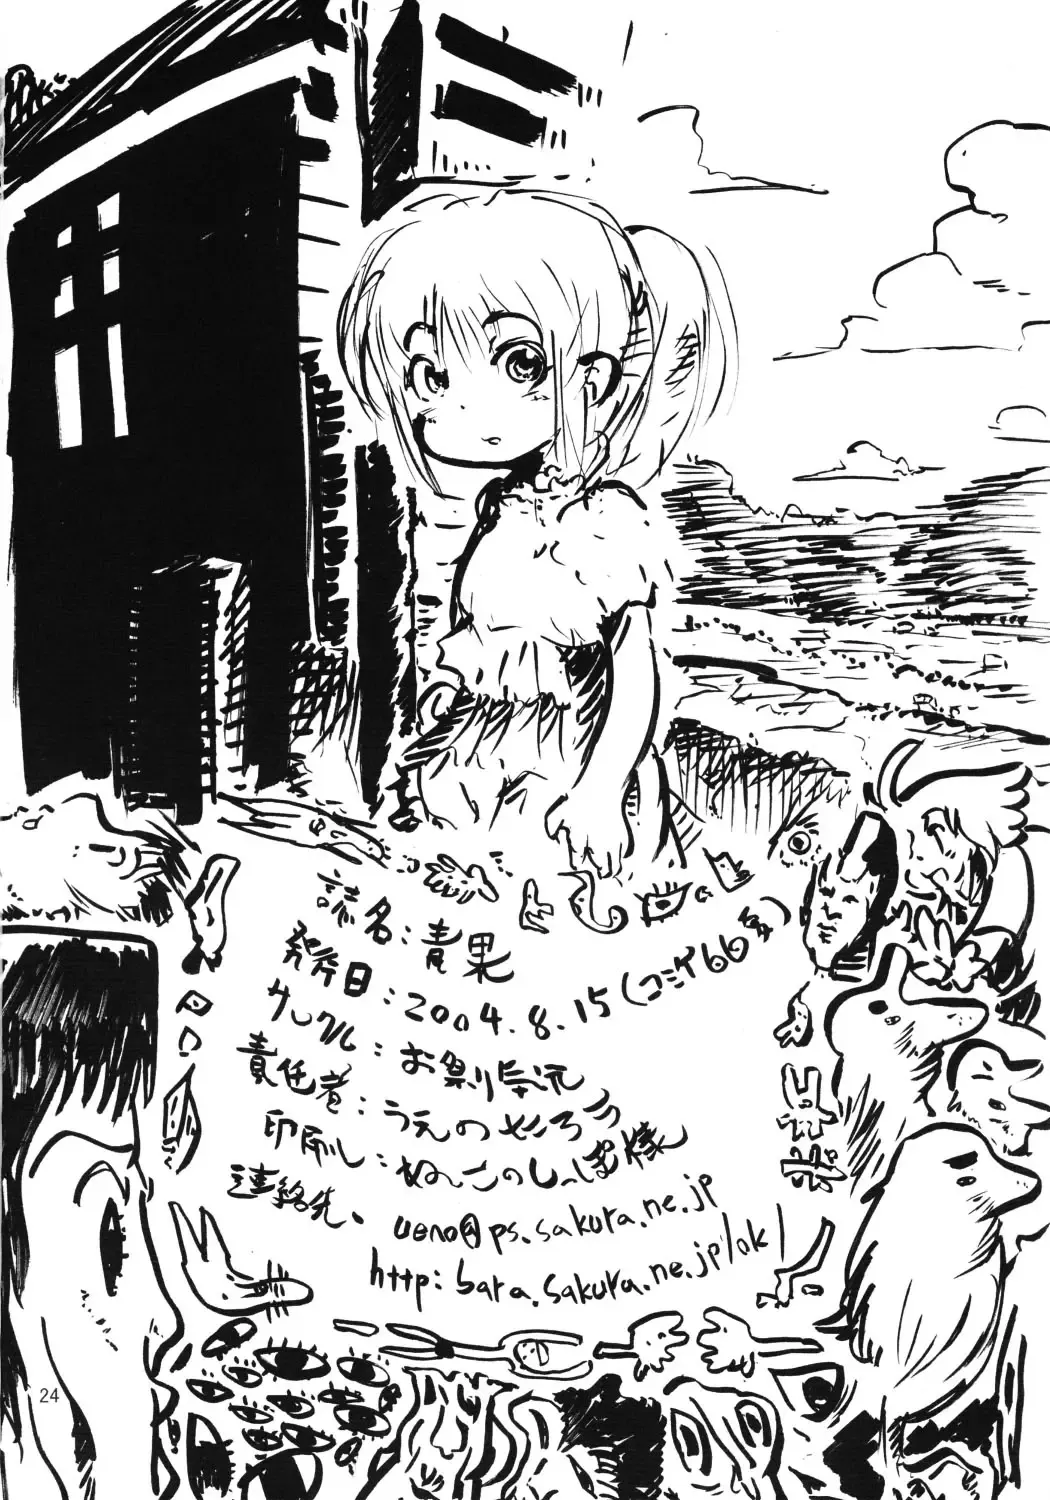 誌名:青果
発行日:2004.8.15(コミケ66日夏)
サークル:お祭り状況
責任者:うえのせころう
印刷:ねこのしっぽ様
連絡先。ueno@ps.sakura.ne.jp
http:bara.sakura.ne.jp/ok/
24